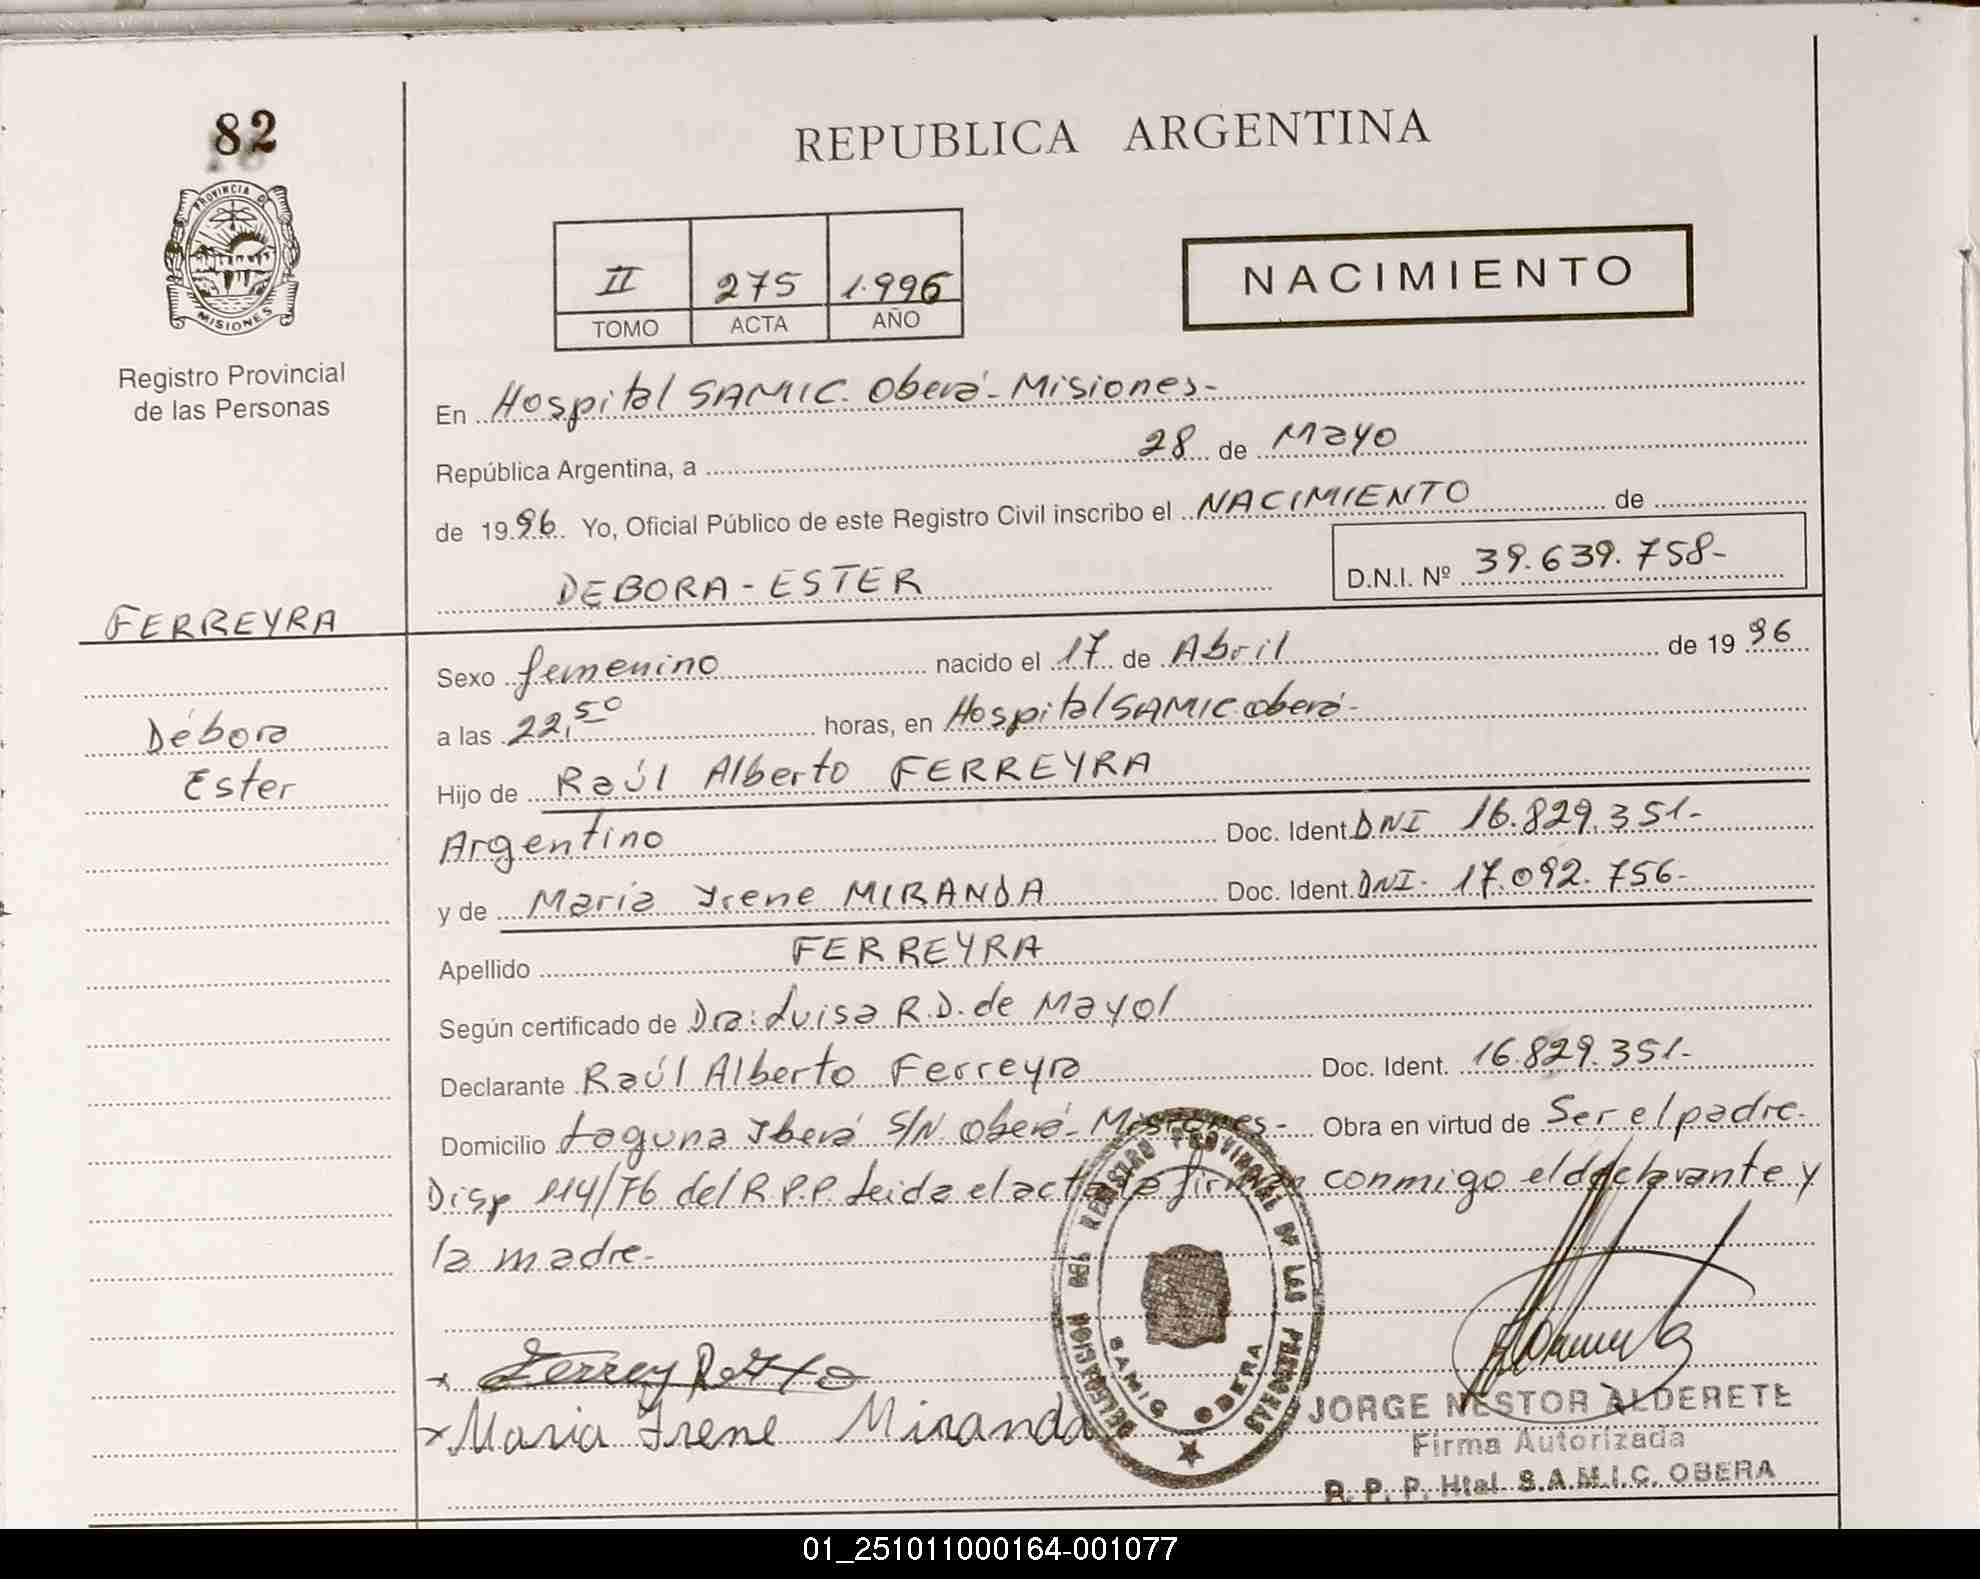 82
PROVINCIA D
MISIONES
Registro Provincial
de las Personas
FERREYRA
Débora
Ester
REPUBLICA ARGENTINA
II 275 1.996
TOMO ACTA AÑO
NACIMIENTO
En Hospital SAMIC. Oberá - Misiones-
República Argentina, a 28 de Mayo
de 19 96. Yo, Oficial Público de este Registro Civil inscribo el NACIMIENTO de
DEBORA - ESTER
D.N.I. Nº 39.639.758-
Sexo femenino nacido el 17 de Abril de 19 96
a las 22,50 horas, en Hospital SAMIC oberá-
Hijo de Raúl Alberto FERREYRA
Argentino Doc. Ident. DNI 16.829.351-
y de Maria Irene MIRANDA Doc. Ident. DNI- 17.092.756-
Apellido FERREYRA
Según certificado de Dra: Luisa R.D. de Mayol
Declarante Raúl Alberto Ferreyra Doc. Ident. 16.829.351-
Domicilio Laguna Iberá S/N Oberá - Misiones- Obra en virtud de Ser el padre.
Disp 114/76 del R.P.P. Leida el acta la firman conmigo el declarante y
la madre-
Maria Irene Miranda
DELEGACION DEL REGISTRO PROVINCIAL DE LAS PERSONAS
SAMIC OBERA
JORGE NESTOR ALDERETE
Firma Autorizada
R. P. P. Htal. S.A.M.I.C. OBERA
01_251011000164-001077